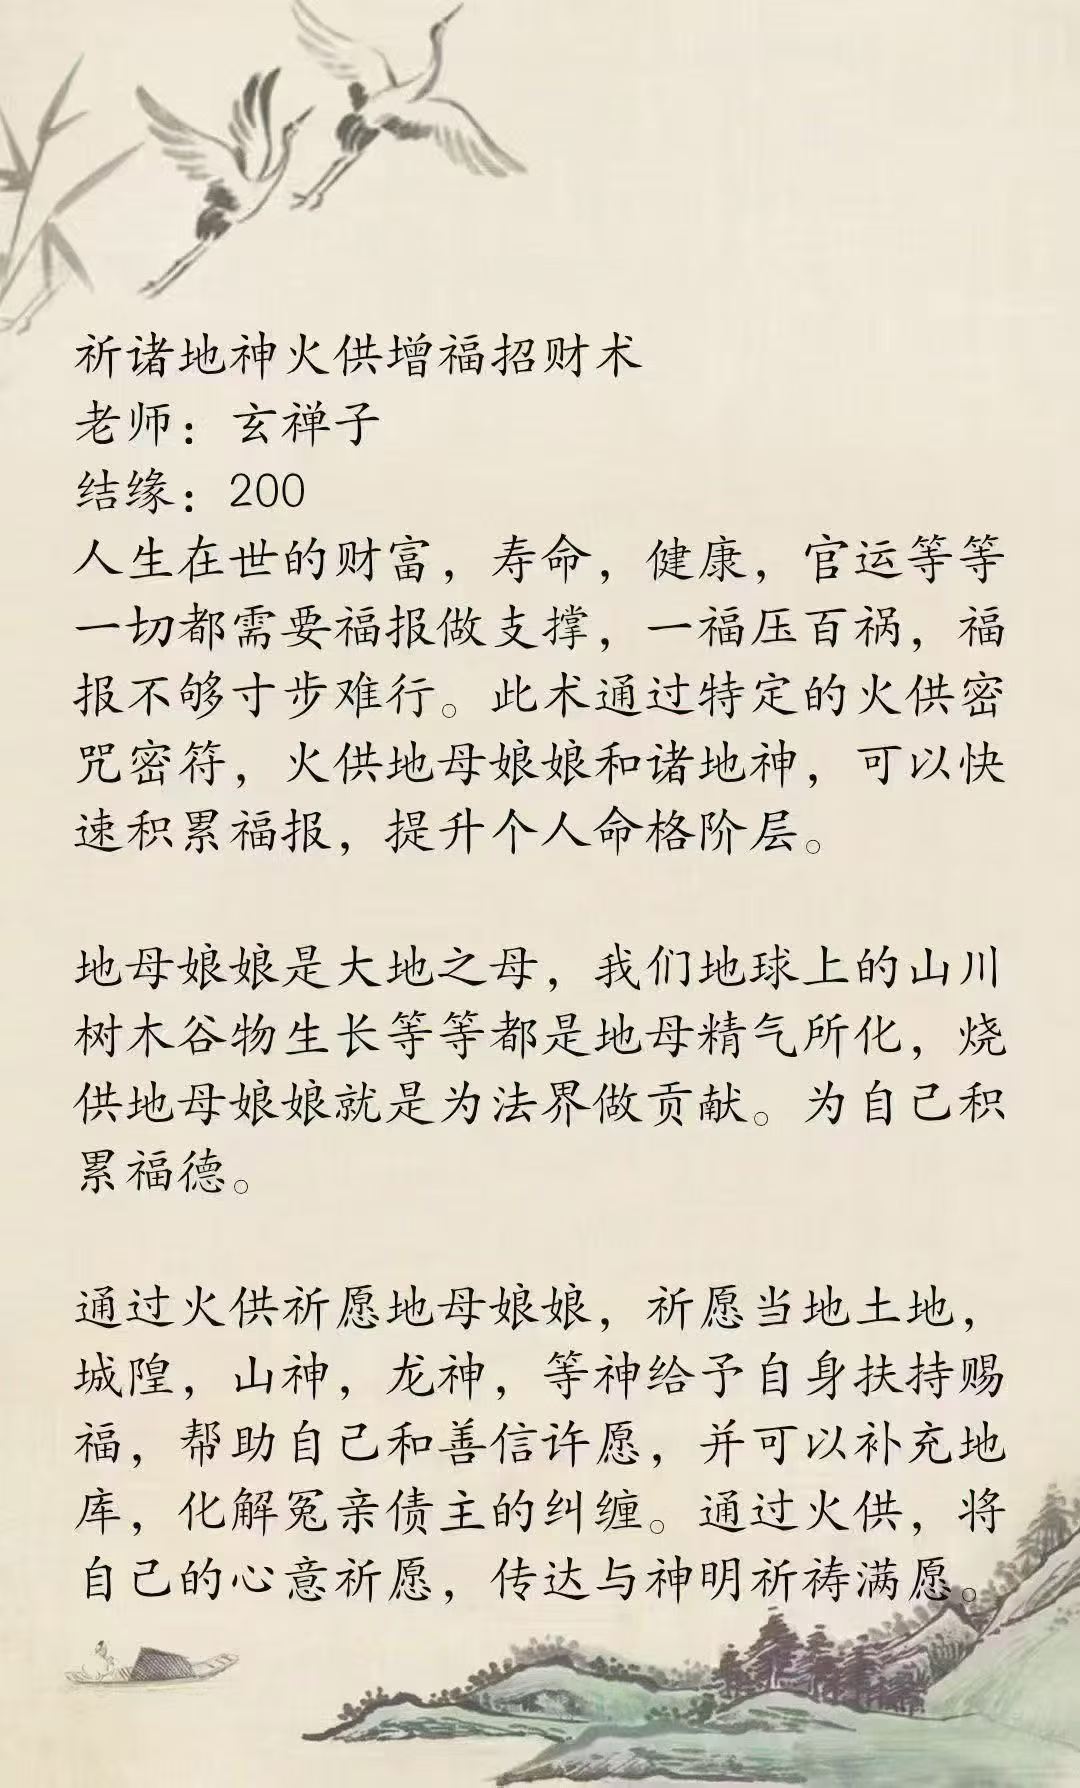 祈诸地神火供增福招财术
老师：玄禅子
结缘：200
人生在世的财富，寿命，健康，官运等等
一切都需要福报做支撑，一福压百祸，福
报不够寸步难行。此术通过特定的火供密
咒密符，火供地母娘娘和诸地神，可以快
速积累福报，提升个人命格阶层。
地母娘娘是大地之母，我们地球上的山川
树木谷物生长等等都是地母精气所化，烧
供地母娘娘就是为法界做贡献。为自己积
累福德。
通过火供祈愿地母娘娘，祈愿当地土地，
城隍，山神，龙神，等神给予自身扶持赐
福，帮助自己和善信许愿，并可以补充地
库，化解冤亲债主的纠缠。通过火供，将
自己的心意祈愿，传达与神明祈祷满愿。